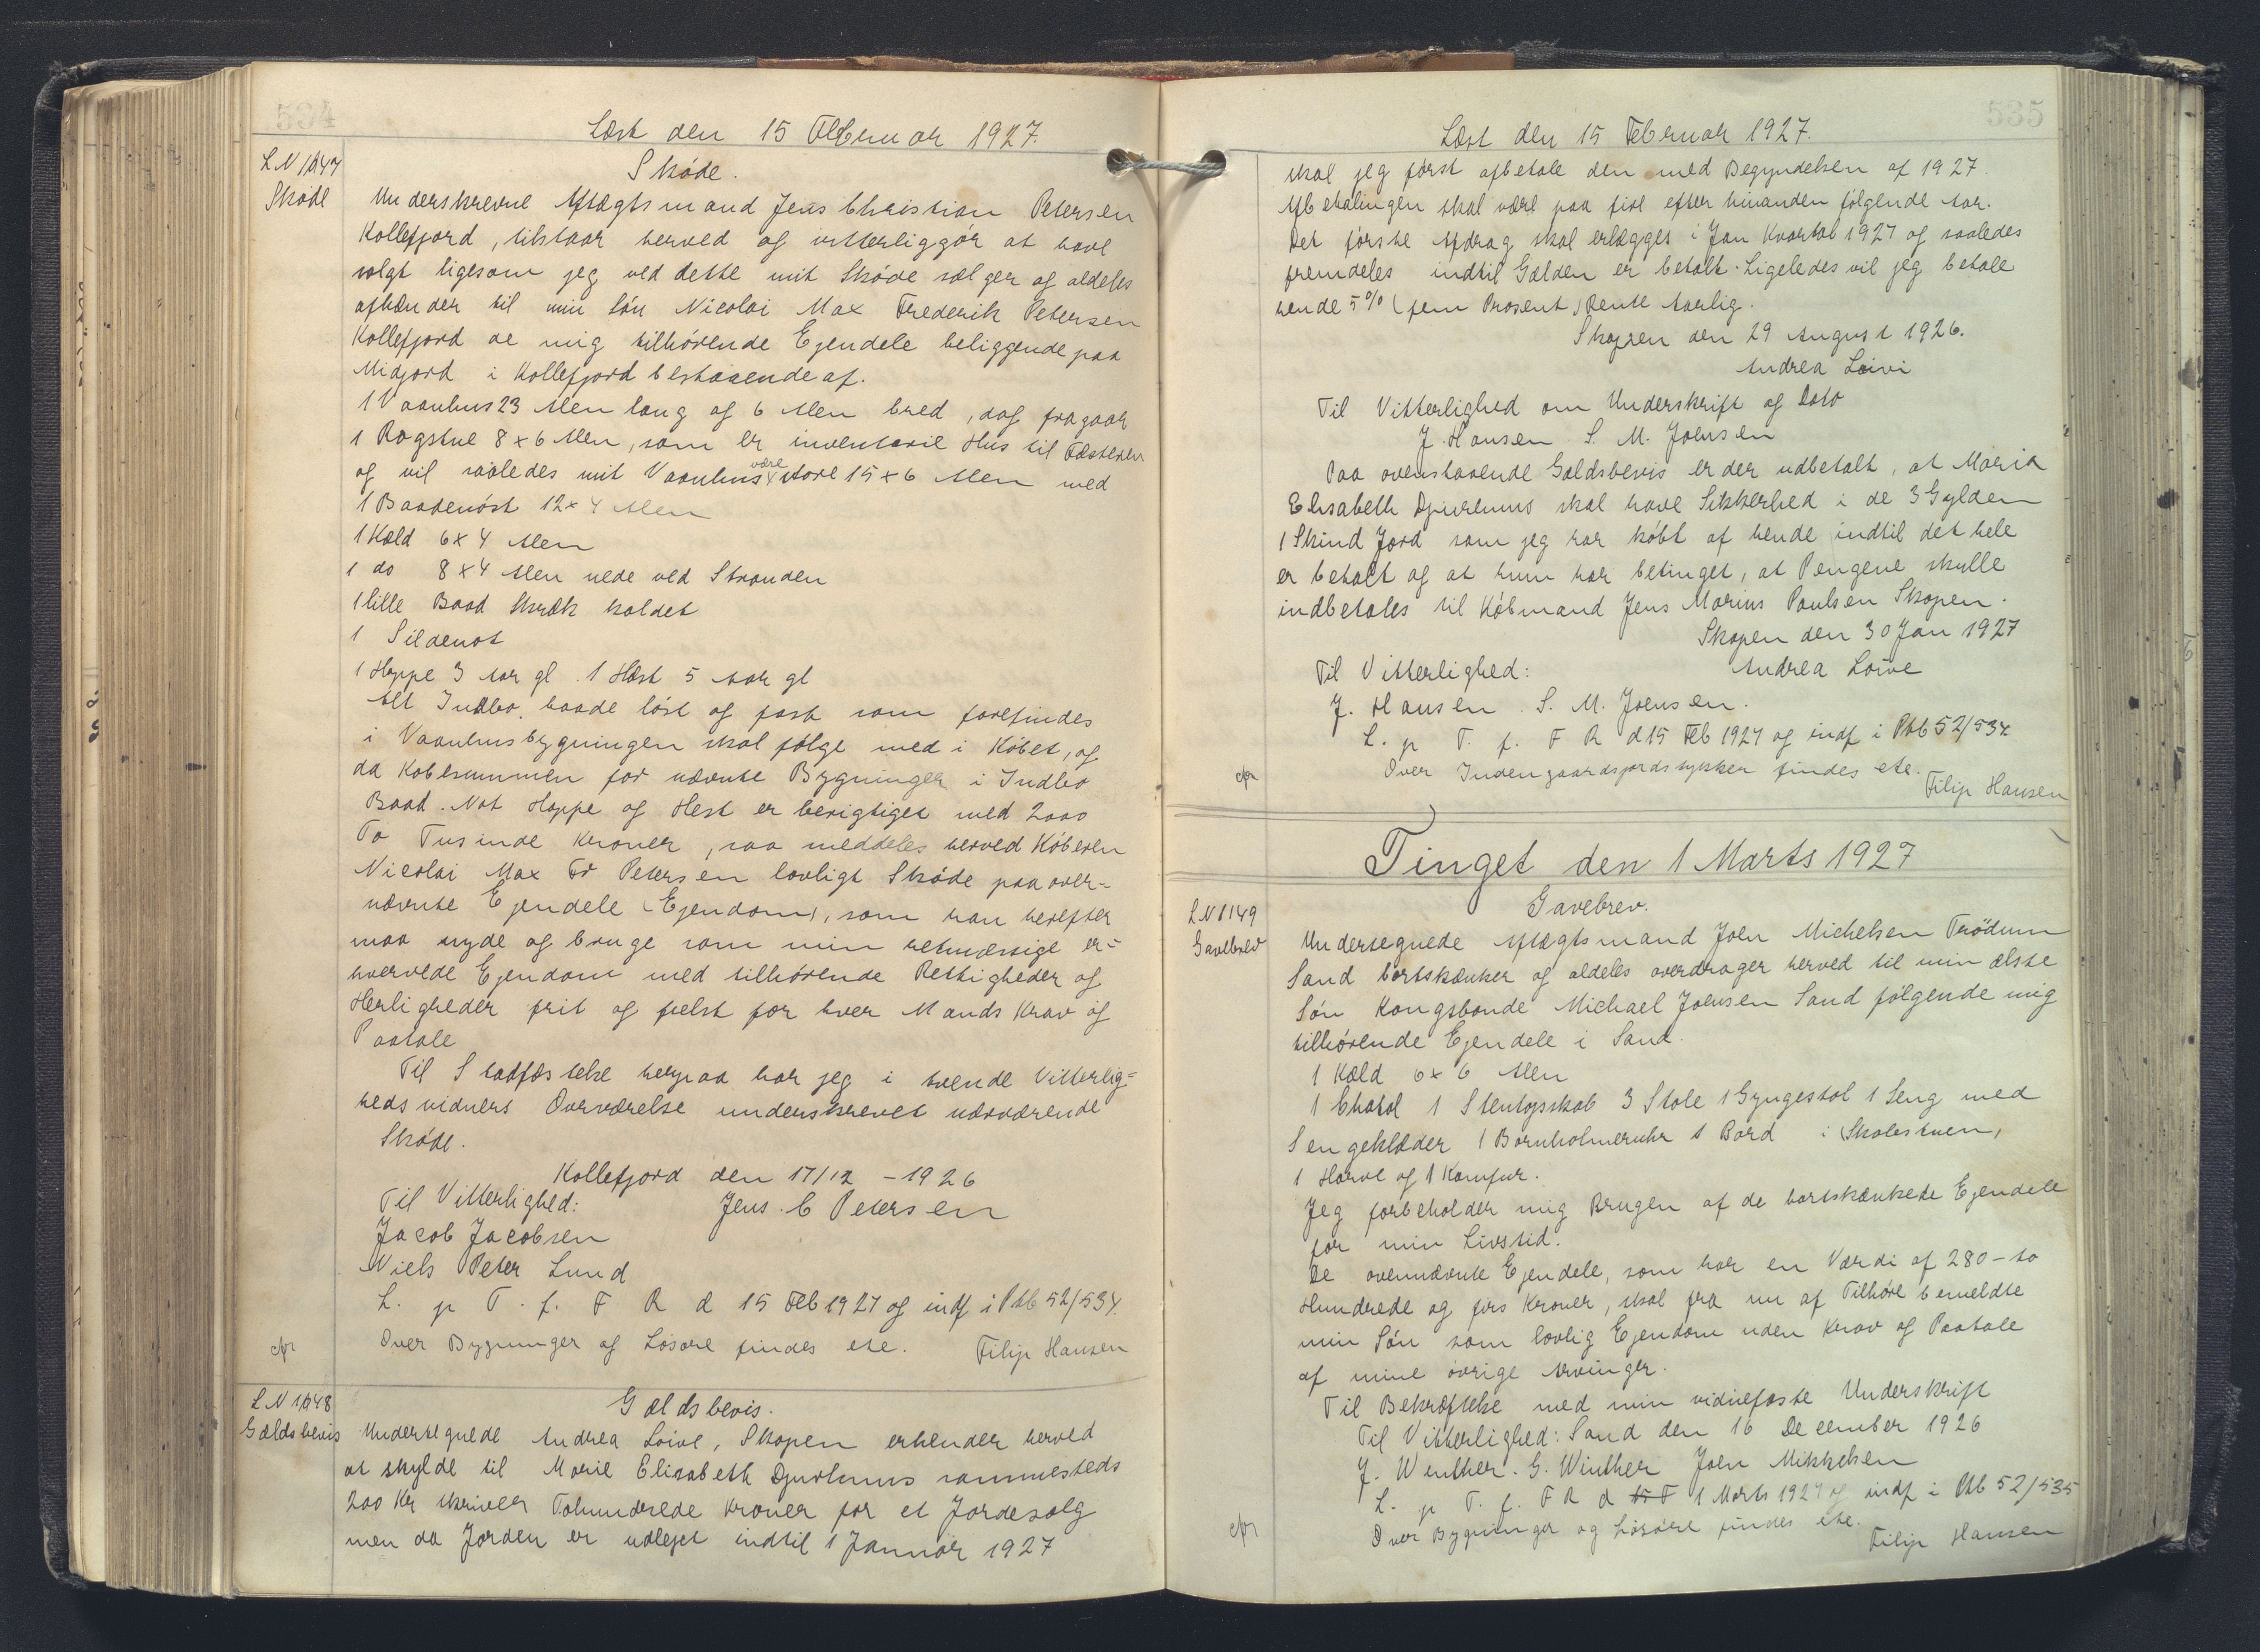 534
Læst den 15 Februar 1927.
L N 1147
Skøde
Skøde.
Underskrevne Aftægtsmand Jens Christian Petersen
Kollefjord, tilstaar herved og vitterliggør at have
solgt ligesom jeg ved dette mit Skøde sælger og aldeles
afhænder til min Søn Nicolai Max Frederik Petersen
Kollefjord de mig tilhørende Ejendele beliggende paa
Midjord i Kollefjord bestaaende af.
1 Vaanhus 23 Alen lang og 6 Alen bred, dog fragaar
1 Rogstue 8 x 6 Alen, som er inventarie Hus til Fæsteren
og vil saaledes mit Vaanhus være store 15 x 6 Alen med
1 Baadenøst 12 x 4 Alen
1 Kæld 6 x 4 Alen
1 do 8 x 4 Alen nede ved Stranden
1 lille Baad Skræk kaldet
1 Sildenot
1 Hoppe 3 Aar gl. 1 Hest 5 Aar gl
Alt Indbo, baade løst og fast som forefindes
i Vaanhusbygningen skal følge med i Købet, og
da Købesummen for nævnte Bygninger i Indbo
Baad. Not Hoppe og Hest er berigtiget med 2000
To Tusinde Kroner, saa meddeles herved Køberen
Nicolai Max Fr Petersen lovligt Skøde paa over-
nævnte Ejendele (Ejendom), som han herefter
maa nyde og bruge som min retmæssige er-
hvervede Ejendom med tilhørende Rettigheder og
Herligheder frit og frelst for hver Mands Krav og
Paatale
Til Stadfæstelse herpaa har jeg i tvende Vitterlig-
hedsvidners Overværelse underskrevet nærværende
Skøde.
Kollefjord den 17/12 - 1926
Til Vitterlighed: Jens. C Petersen
Jacob Jacobsen
Niels Peter Lund
L. p T. f. F R d 15 Feb 1927 og indf i Ptb 52/534.
cfr Over Bygninger og Løsøre findes ete. Filip Hansen
L N 1148
Gældsbevis
Gældsbevis.
Undertegnede Andrea Loive, Skopen erkender herved
at skylde til Marie Elisabeth Djurhuus sammesteds
200 Kr skriver Tohundrede Kroner for et Jordesalg
men da Jorden er udlejet indtil 1 Januar 1927
535
Læst den 15 Februar 1927.
skal jeg først afbetale den med Begyndelsen af 1927.
Afbetalingen skal være paa fire efter hinanden følgende Aar.
Det første Afdrag skal erlægges i Jan Kvartal 1927 og saaledes
fremdeles indtil Gælden er betalt. Ligeledes vil jeg betale
hende 5% (fem Prosent) Rente Aarlig.
Skopen den 29 August 1926.
Andrea Loivi
Til Vitterlighed om Underskrift og Dato
J. Hansen S. M. Joensen
Paa ovenstaaende Gældsbevis er der udbetalt, at Maria
Elisabeth Djurhuus skal have Sikkerhed i de 3 Gylden
1 Skind Jord som jeg har købt af hende indtil det hele
er betalt og at hun har betinget, at Pengene skulle
indbetales til Købmand Jens Marius Poulsen Skopen.
Skopen den 30 Jan 1927
Til Vitterlighed: Andrea Loive
J. Hansen. S. M. Joensen.
L. p T. f. F R d 15 Feb 1927 og indf i Ptb 52/534.
cfr Over Indengaardsjordsstykker findes ete.
Filip Hansen
Tinget den 1 Marts 1927
L N 1149
Gavebrev
Gavebrev.
Undertegnede Aftægtsmand Joen Michelsen Trödum
Sand bortskænker og aldeles overdrager herved til min ælste
Søn Kongsbonde Michael Joensen Sand følgende mig
tilhørende Ejendele i Sand.
1 Kæld 6 x 6 Alen
1 Chatol 1 Stentøjsskab 3 Stole 1 Gyngestol 1 Seng med
Sengeklæder 1 Bornholmeruhr 1 Bord i Skolestuen,
1 Harve og 1 Komfur.
Jeg forbeholder mig Brugen af de bortskænkede Ejendele
for min Livstid.
De ovennævnte Ejendele, som har en Værdi af 280 - to
Hundrede og firs Kroner, skal fra nu af Tilhøre bemeldte
min Søn som lovlig Ejendom uden Krav og Paatale
af mine øvrige Arvinger.
Til Bekræftelse med min vidnefaste Underskrift
Til Vitterlighed: Sand den 16 December 1926
J. Wenther. G. Winther Joen Mikkelsen
L. p T. f. F R d 15 F 1 Marts 1927 og indf i Ptb 52/535
cfr Over Bygninger og Løsøre findes ete.
Filip Hansen